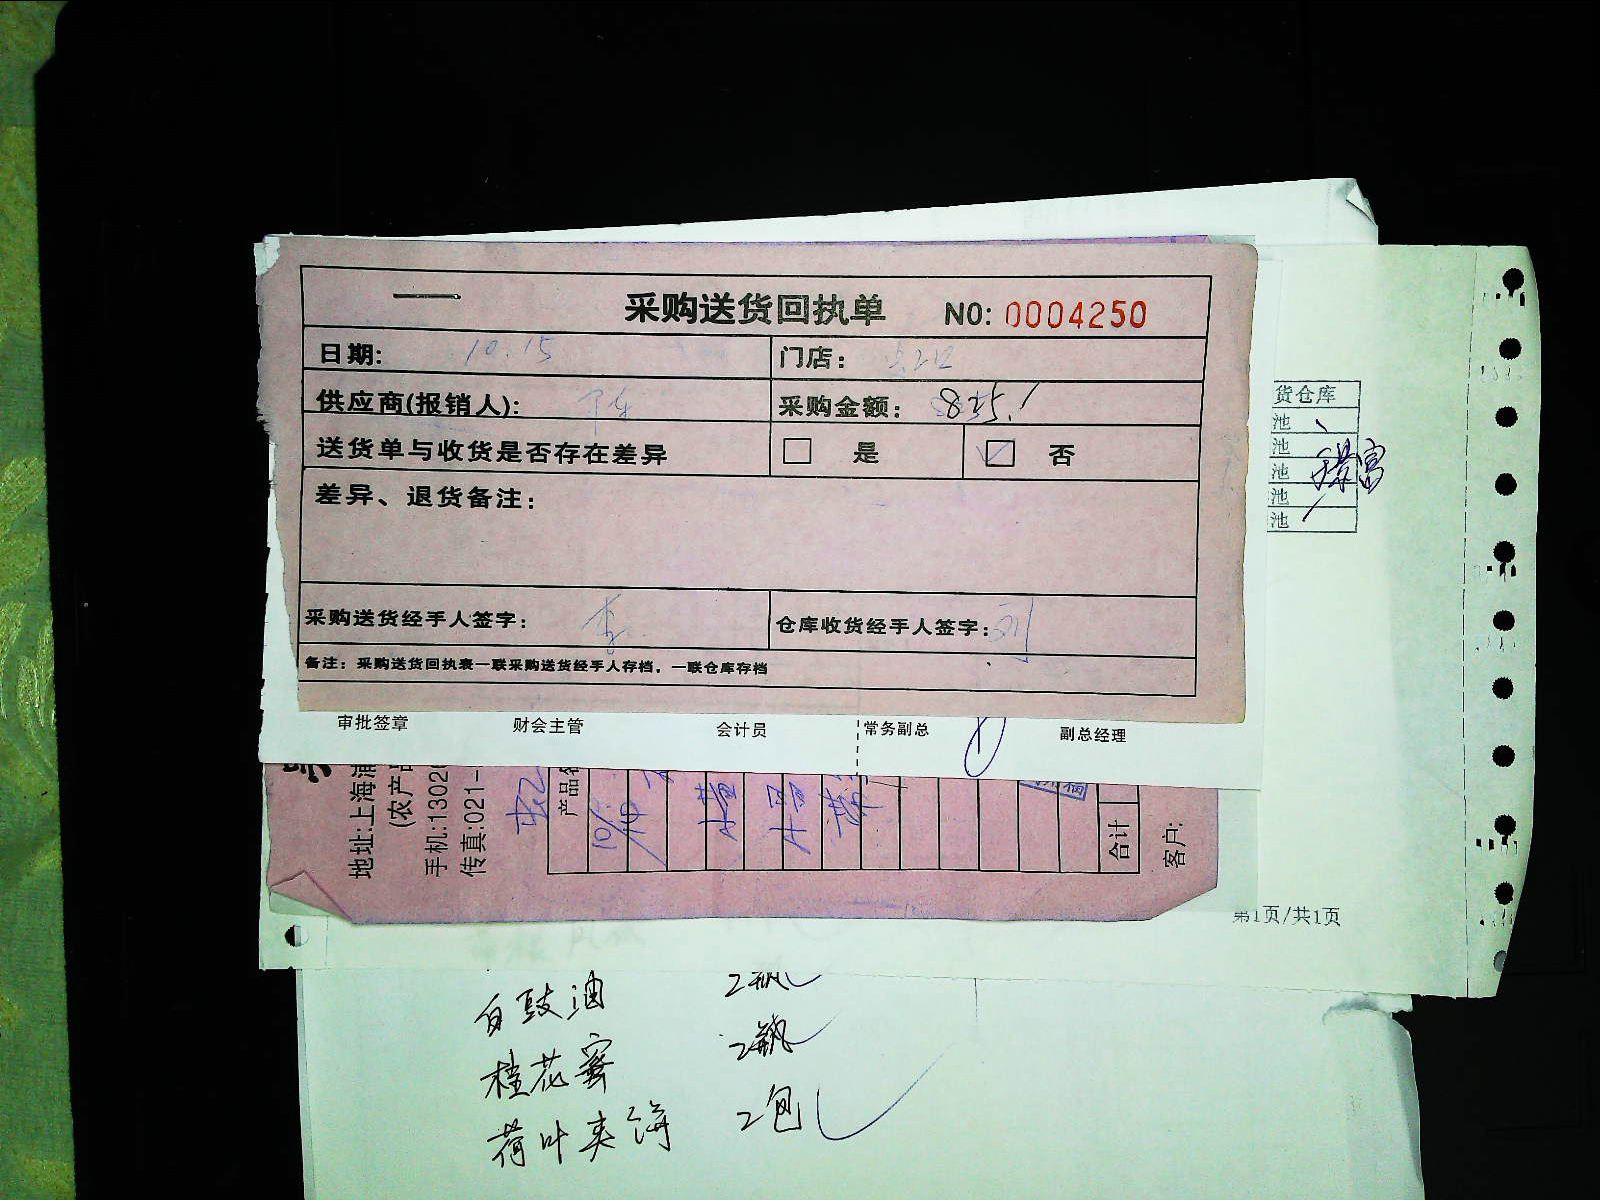 采购送货回执单 NO: 0004250
日期: 10.15 门店:
供应商(报销人): 采购金额: 825.1
送货单与收货是否存在差异 是 否
差异、退货备注:
采购送货经手人签字: 李 仓库收货经手人签字: 刘
备注: 采购送货回执表一联采购送货经手人存档, 一联仓库存档
审批签章 财会主管 会计员 常务副总 副总经理
货仓库
池
池
池
池
池
地址:上海浦
(农产品
手机:1302
传真:021-
产品名
合计
客户:
第1页/共1页
白豉油 2瓶
桂花蜜 2瓶
荷叶夹饼 2包